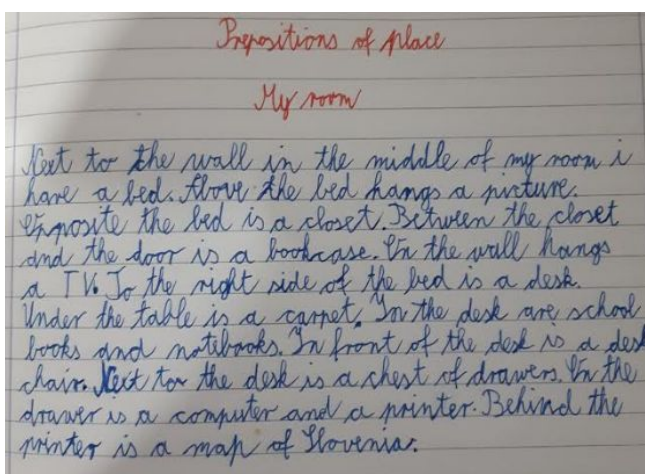 Prepositions of place
My room
Next to the wall in the middle of my room i
have a bed. Above the bed hangs a picture.
Opposite the bed is a closet. Between the closet
and the door is a bookcase. On the wall hangs
a TV. To the right side of the bed is a desk.
Under the table is a carpet. On the desk are school
books and notibooks. In front of the desk is a desk
chair. Next to the desk is a chest of drawers. On the
drawer is a computer and a printer. Behind the
printer is a map of Slovenia.